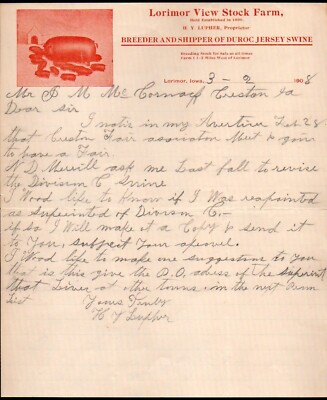 Lorimor View Stock Farm,
Herd Established in 1890.
H. Y. LUPHER, Proprietor
BREEDER AND SHIPPER OF DUROC JERSEY SWINE
Breeding Stock for Sale at all times
Farm 1 1-2 Miles West of Lorimor
Lorimor, Iowa, 3 - 2 1908
Mr M Mc Cornack Creston Ia
Dear Sir
I notis in my Avertiser Feb. 28
that Creston Fair assosiation Meet & goin
to have a Fair.
D Merrill ask me Last fall to revise
the Division C Swine
I Wood like to Know if I Was reapointed
as Superintend of Division C. -
if so I Will make it a Copy & send it
to You, subject Your aproval.
I Wood like to make one suggestions to You
that is this give the P.O. adress of the
that Lives at other towns in the next Prem
List
Yours Truly
H Y Lupher